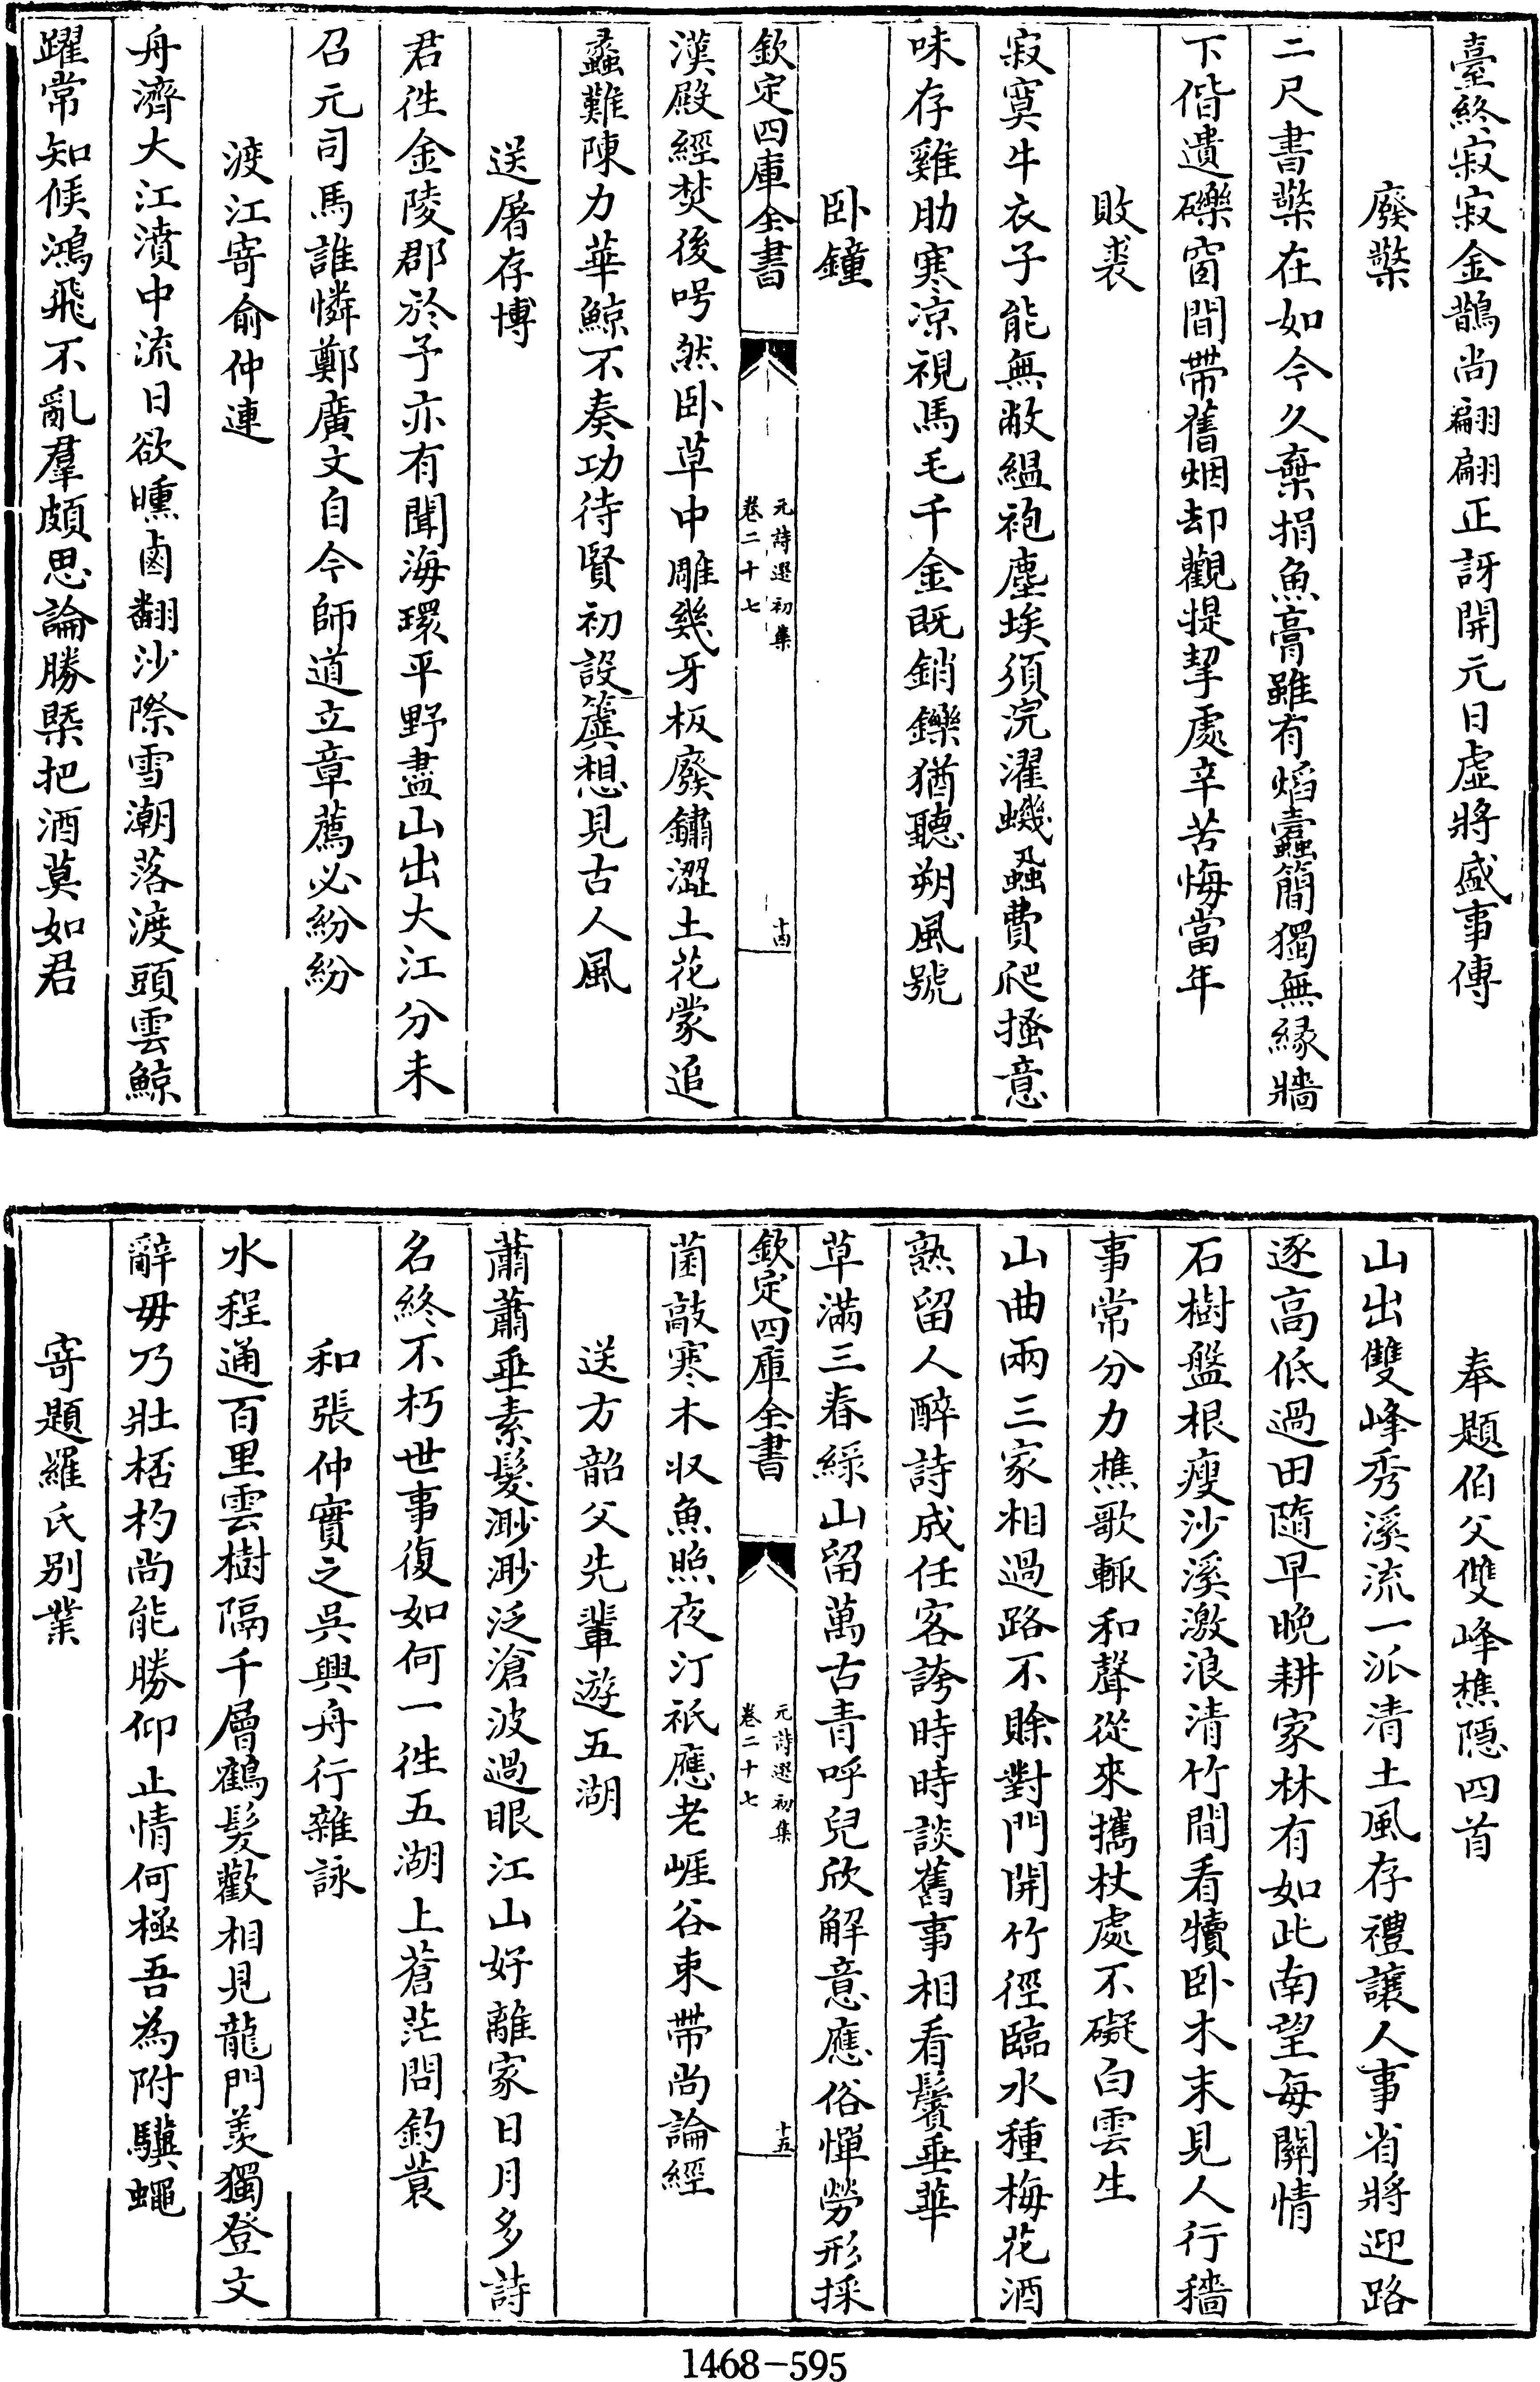 臺終寂寂金鵲尚翩翩正訝開元日虛將盛事傳
廢檠
二尺書檠在如今久棄捐魚膏雖有焰蠹簡獨無緣牆
下偕遺礫窗間帶舊烟却觀提挈處辛苦悔當年
敗裘
寂寞牛衣子能無敝縕袍塵埃須浣濯蟣蝨費爬搔意
味存雞肋寒凉視馬毛千金既銷鑠猶聽朔風號
卧鐘
欽定四庫全書
元詩選初集
卷二十七
十四
漢殿經焚後呺然卧草中雕幾牙板廢鏽澀土花蒙追
蠡難陳力華鯨不奏功待賢初設簴想見古人風
送屠存博
君徃金陵郡於予亦有聞海環平野盡山出大江分未
召元司馬誰憐鄭廣文自今師道立章薦必紛紛
渡江寄俞仲連
舟濟大江濆中流日欲曛鹵翻沙際雪潮落渡頭雲鯨
躍常知候鴻飛不亂羣頗思論勝槩把酒莫如君
奉題伯父雙峰樵隱四首
山出雙峰秀溪流一派清土風存禮讓人事省將迎路
逐高低過田隨早晚耕家林有如此南望每關情
石樹盤根瘦沙溪激浪清竹間看犢卧木末見人行穡
事常分力樵歌輒和聲從來攜杖處不礙白雲生
山曲兩三家相過路不賒對門開竹徑臨水種梅花酒
熟留人醉詩成任客誇時時談舊事相看鬢垂華
草滿三春綠山留萬古青呼兒欣解意應俗憚勞形採
欽定四庫全書
元詩選初集
卷二十七
十五
菌敲寒木収魚照夜汀祇應老崕谷束帶尚論經
送方韶父先輩遊五湖
蕭蕭垂素髮渺渺泛滄波過眼江山好離家日月多詩
名終不朽世事復如何一徃五湖上蒼茫問釣蓑
和張仲實之吳興舟行雜詠
水程通百里雲樹隔千層鶴髮歡相見龍門羨獨登文
辭毋乃壯桮杓尚能勝仰止情何極吾為附驥蠅
寄題羅氏别業
1468-595